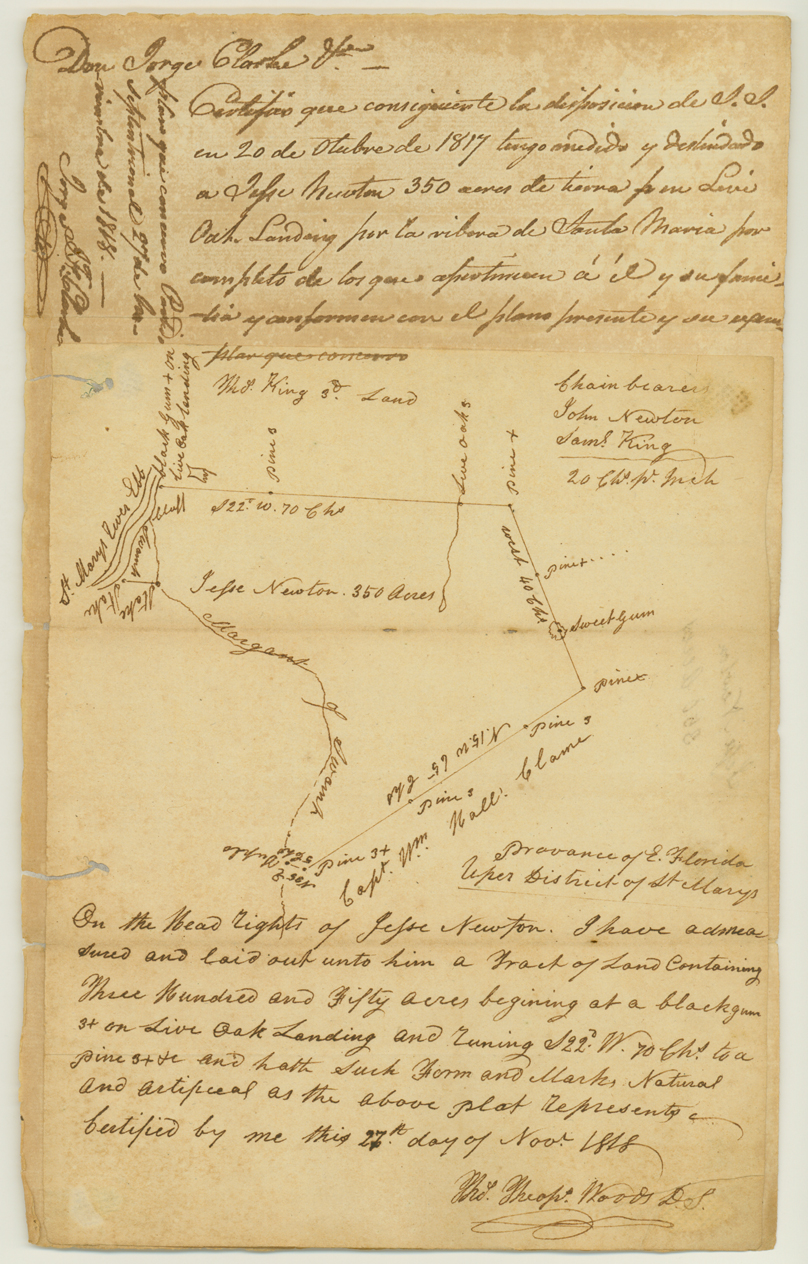 Don Jorge Clarke &ca
Certifico que consiguiente la disposicion de S. S.
en 20 de Otubre de 1817 tengo medido y deslindado
a Jesse Newton 350 acres de tierra en Live
Oak Landing por la ribera de Santa Maria por
completo de los que apertenecen á él y su fami-
lia y conformen con el plano presente y su
plan que conservo
septentrional 27 de No-
viembre de 1818.
Jorge J. F. Clarke
Thos. King 3d. Land
Chain bearers
John Newton
Saml. King
20 Chs. pr. Inch
black Gum 3+ on
Live Oak Landing
Pine 3
Live Oak 3
Pine +
S22d. W. 70 Chs
St. Marys River
Bluff
Swamp
Stake
Stake
Pine + . . . .
Sweet Gum
Jesse Newton. 350 Acres
Margent
of Swamp
Pine x
Pine 3
N. 15. W 65 Chs
Pine 3
Pine 3+
Capt. Wm. Hall. Clame
Provance of E. Florida
Uper District of St Marys
On the Head rights of Jesse Newton. I have admea-
sured and laid out unto him a Tract of Land Containing
Three Hundred and Fifty acres begining at a blackgum
3+ on Live Oak Landing and runing S22d. W. 70 Chs. to a
pine 3+ &c and hath Such Form and Marks Natural
and artificeal as the above plat represents
Certified by me this 27th. day of Novr. 1818
Thos. Theops. Woods D. S.